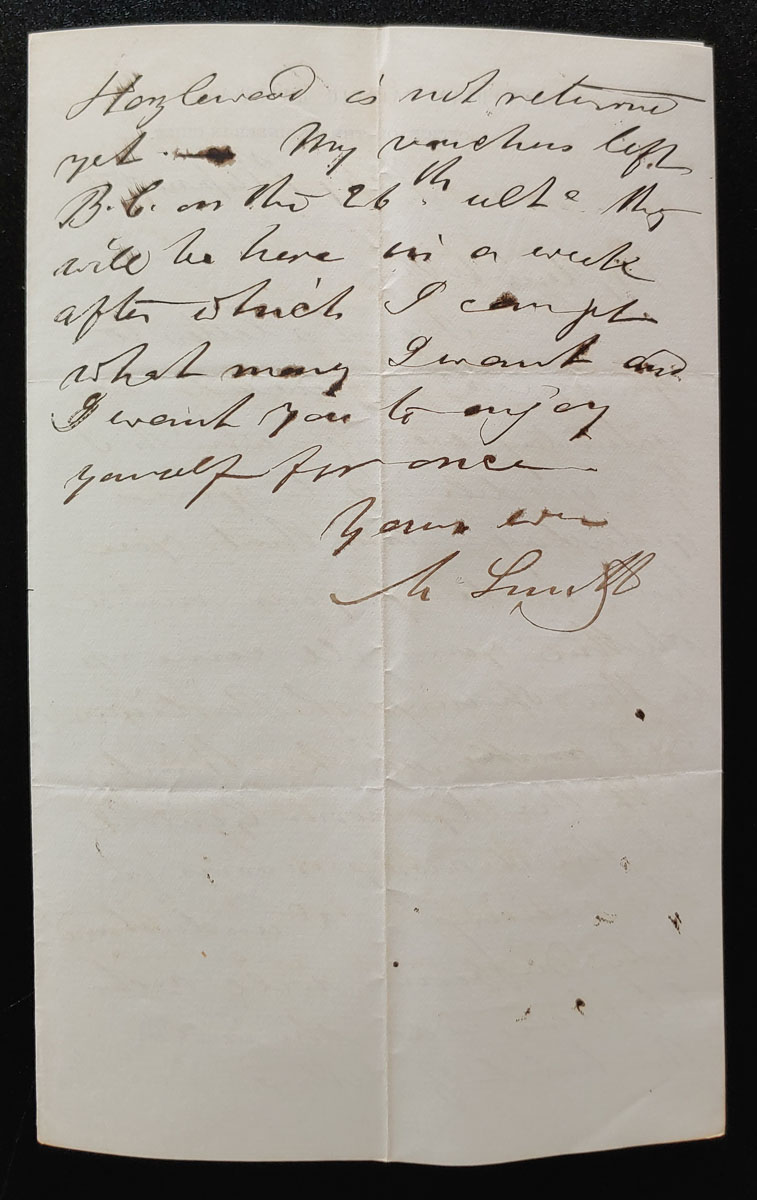 Hazlewood is not returned
yet — My vouchers left
B.C. on the 26th ulto they
will be here in a week
after which I can get
what money I want and
I want you to enjoy
yourself for once
Yours ever
M